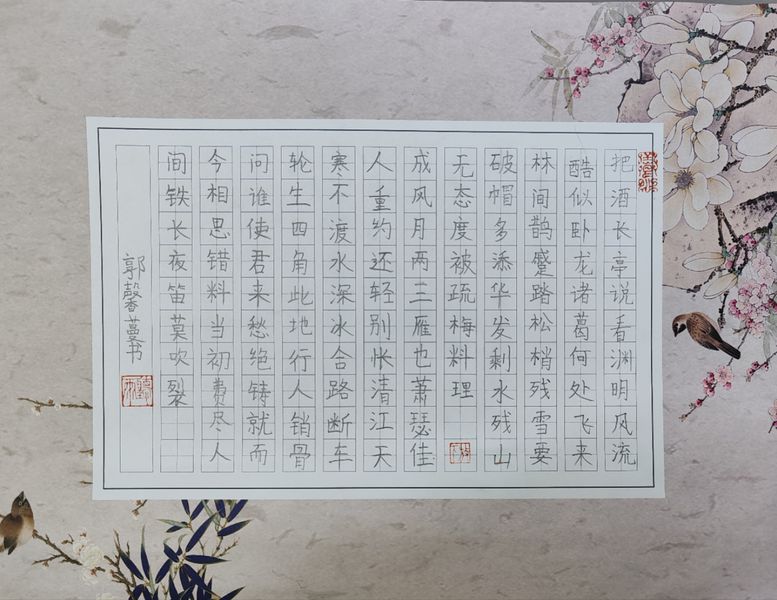 把酒长亭说看渊明风流
酷似卧龙诸葛何处飞来
林间鹊蹙踏松梢残雪要
破帽多添华发剩水残山
无态度被疏梅料理
成风月两三雁也萧瑟佳
人重约还轻别怅清江天
寒不渡水深冰合路断车
轮生四角此地行人销骨
问谁使君来愁绝铸就而
今相思错料当初费尽人
间铁长夜笛莫吹裂
郭馨蔓书